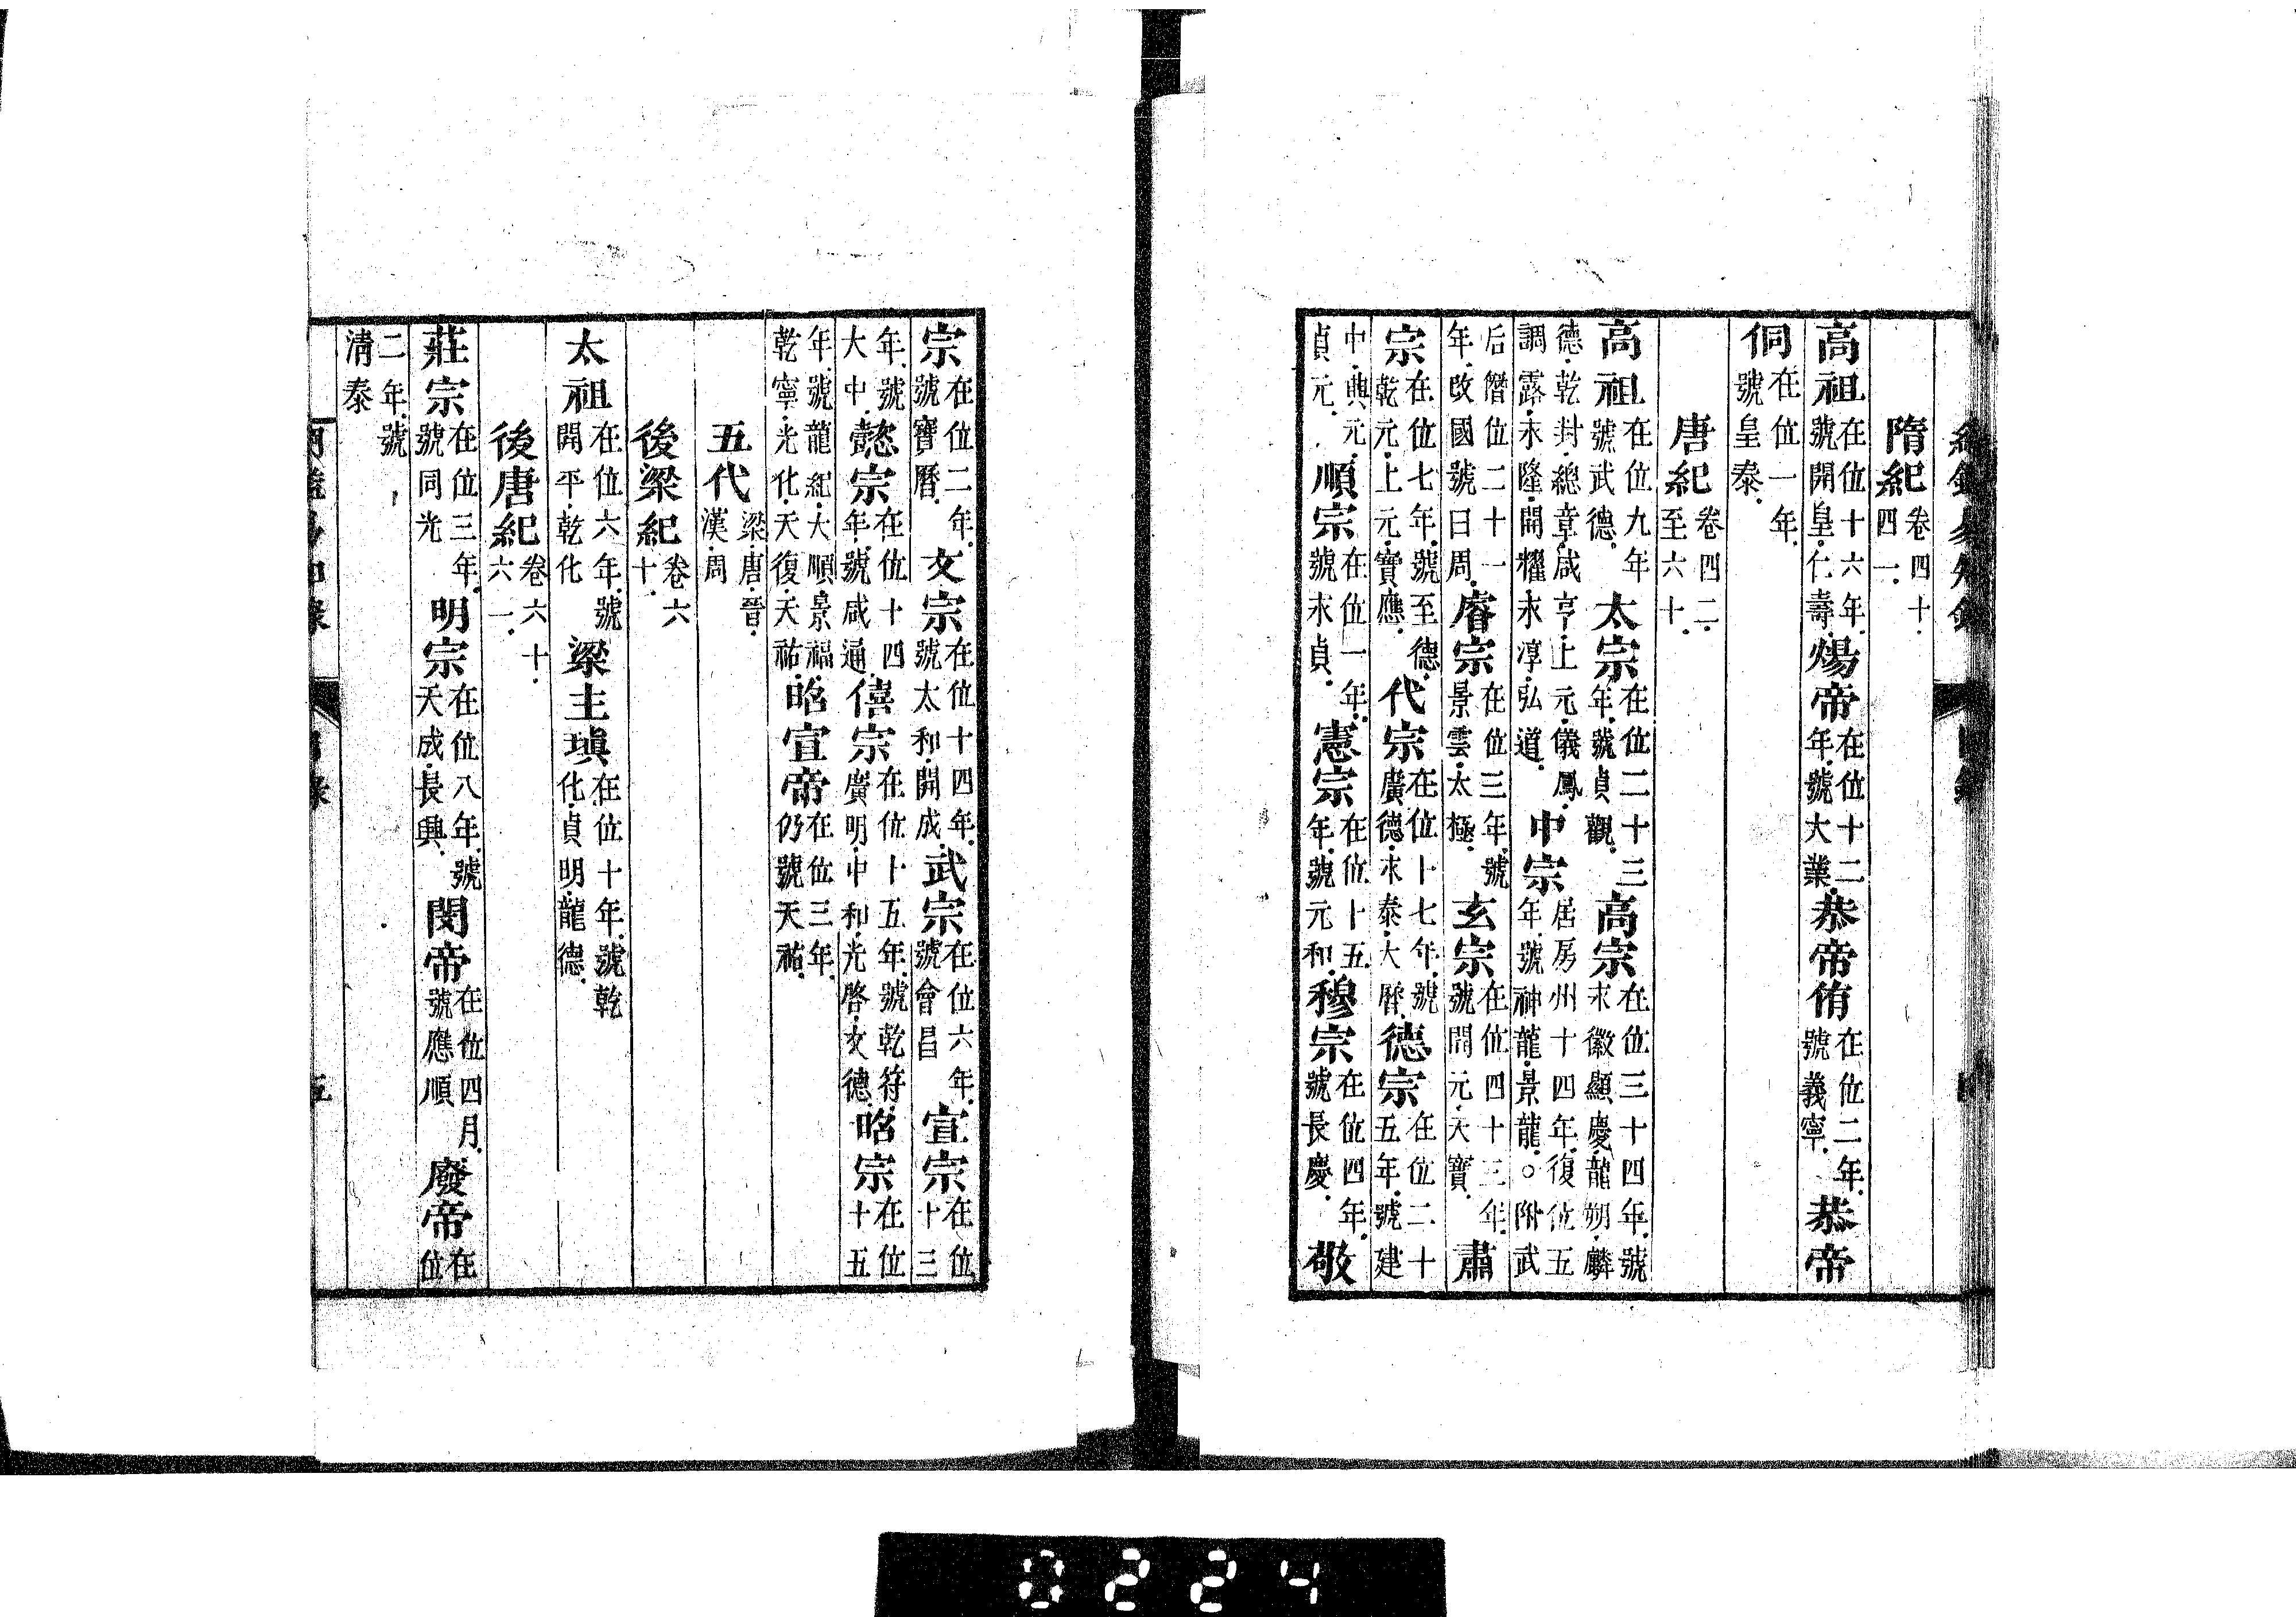 隋紀卷四十四一
高祖在位十六年號開皇仁壽煬帝在位十二年號大業恭帝侑在位二年號義寧恭帝
侗在位一年號皇泰
唐紀卷四二至六十
高祖在位九年號武德太宗在位二十三年號貞觀高宗在位三十四年號永徽顯慶龍朔麟
德乾封總章咸亨上元儀鳳調露永隆開耀永淳弘道中宗居房州十四年復位五年號神龍景龍○附武
后僭位二十一年改國號曰周睿宗在位三年號景雲太極玄宗在位四十三年號開元天寶肅
宗在位七年號至德乾元上元寶應代宗在位十七年號廣德永泰大曆德宗在位二十五年號建
中興元貞元順宗在位一年號永貞憲宗在位十五年號元和穆宗在位四年號長慶敬
宗在位二年號寶曆文宗在位十四年號太和開成武宗在位六年號會昌宣宗在位十三
年號大中懿宗在位十四年號咸通僖宗在位十五年號乾符廣明中和光啓文德昭宗在位十五
年號龍紀大順景福乾寧光化天復天祐昭宣帝在位三年仍號天祐
五代梁唐晉漢周
後梁紀卷六十
太祖在位六年號開平乾化梁主瑱在位十年號乾化貞明龍德
後唐紀卷六十六一
莊宗在位三年號同光明宗在位八年號天成長興閔帝在位四月號應順廢帝在位
二年號清泰
0224